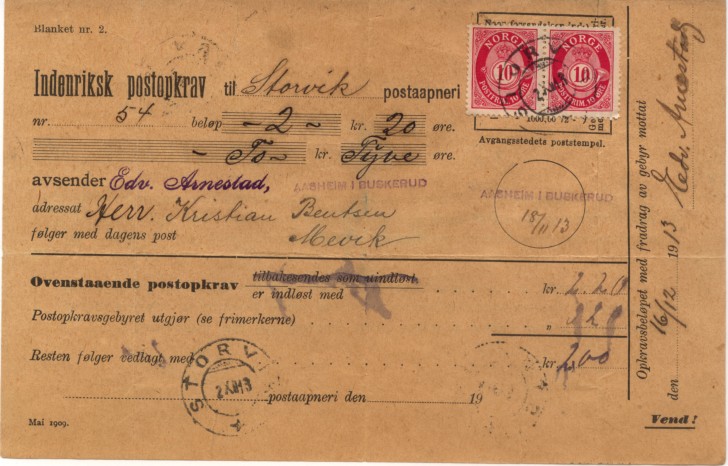 Blanket nr. 2.
Indenriksk postopkrav til Storvik postaapneri
nr. 54 beløp - 2 - kr. 20 øre.
- To - kr. Tyve øre.
avsender Edv. Arnestad,
AASHEIM I BUSKERUD
adressat Herr. Kristian Bentsen
følger med dagens post Mevik
NORGE NORGE
10 10
POSTFRIM. 10 ØRE POSTFRIM. 10 ØRE
STORV
2 XII 13
Avgangsstedets poststempel.
AASHEIM I BUSKERUD
18/11 13
Ovenstaaende postopkrav tilbakesendes som uindløst.
er indløst med kr. 2.20
Postopkravsgebyret utgjør (se frimerkerne) "
Resten følger vedlagt med kr. 200
STORV
2 XII 13
postaapneri den 19
Mai 1909.
Vend!
Opkravsbeløpet med fradrag av gebyr mottat
den 16/12 1913 Edv. Arnestad